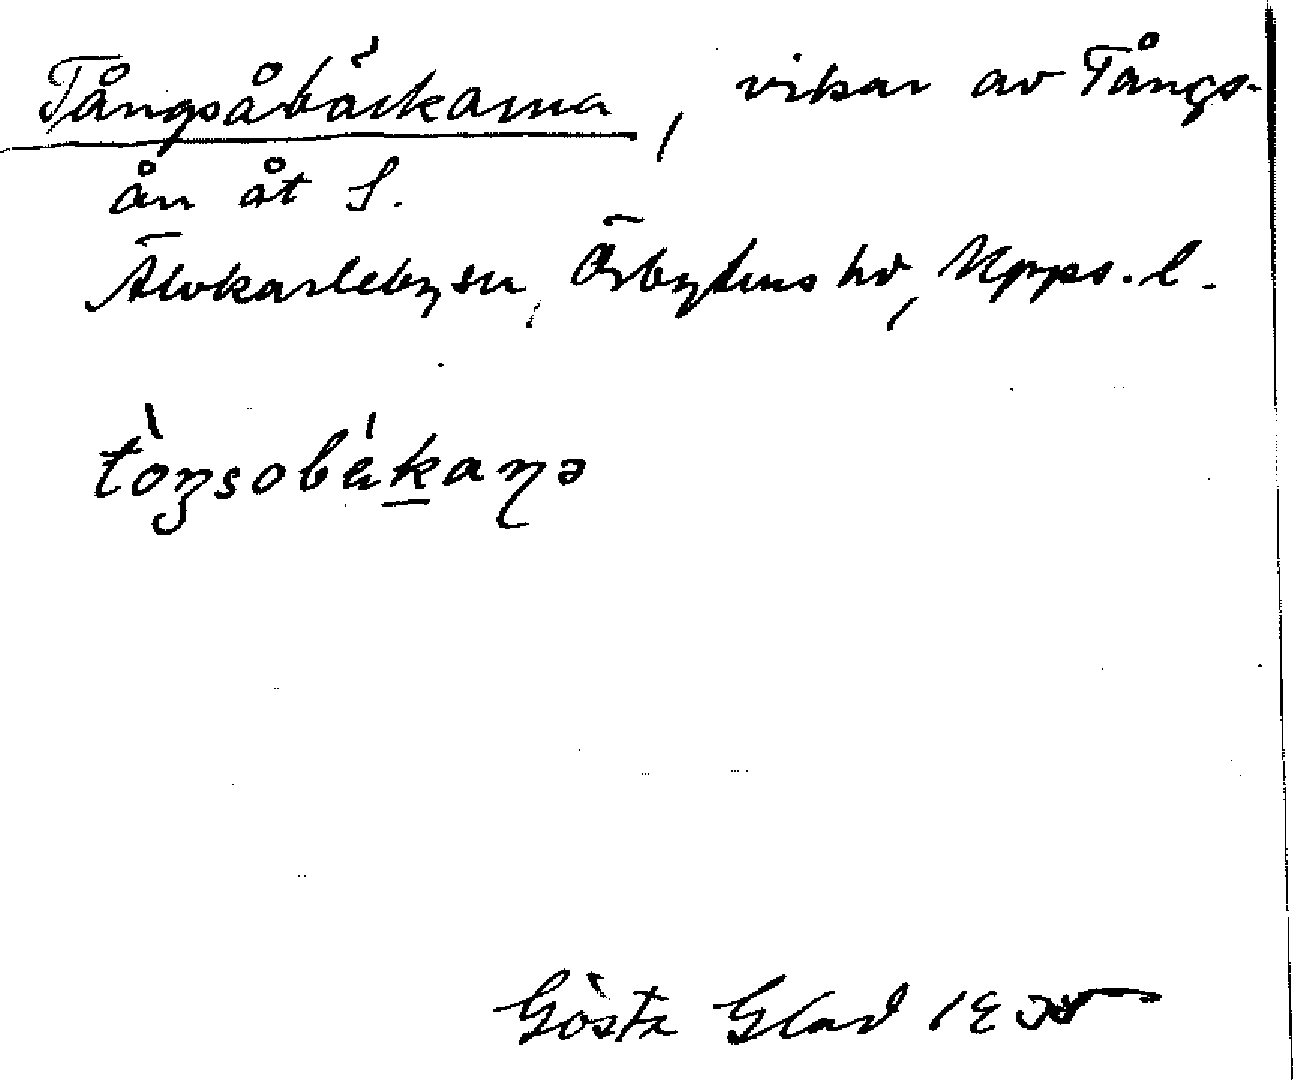 Tångsåbäckarna, vikar av Tångs-
ån åt S.
Älvkarleby sn, Örbyhus hd, Upps. l.
tòŋsobɛ́kaɳə
Gösta Glad 1935